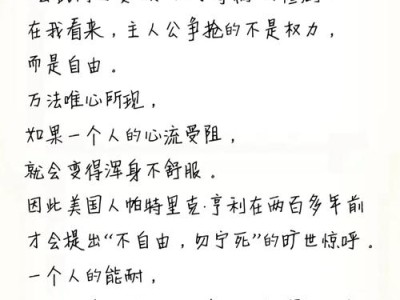 在我看来，主人公争抢的不是权力，
而是自由。
万法唯心所现，
如果一个人的心流受阻，
就会变得浑身不舒服。
因此美国人帕特里克·亨利在两百多年前
才会提出“不自由，勿宁死”的旷世惊呼。
一个人的能耐，